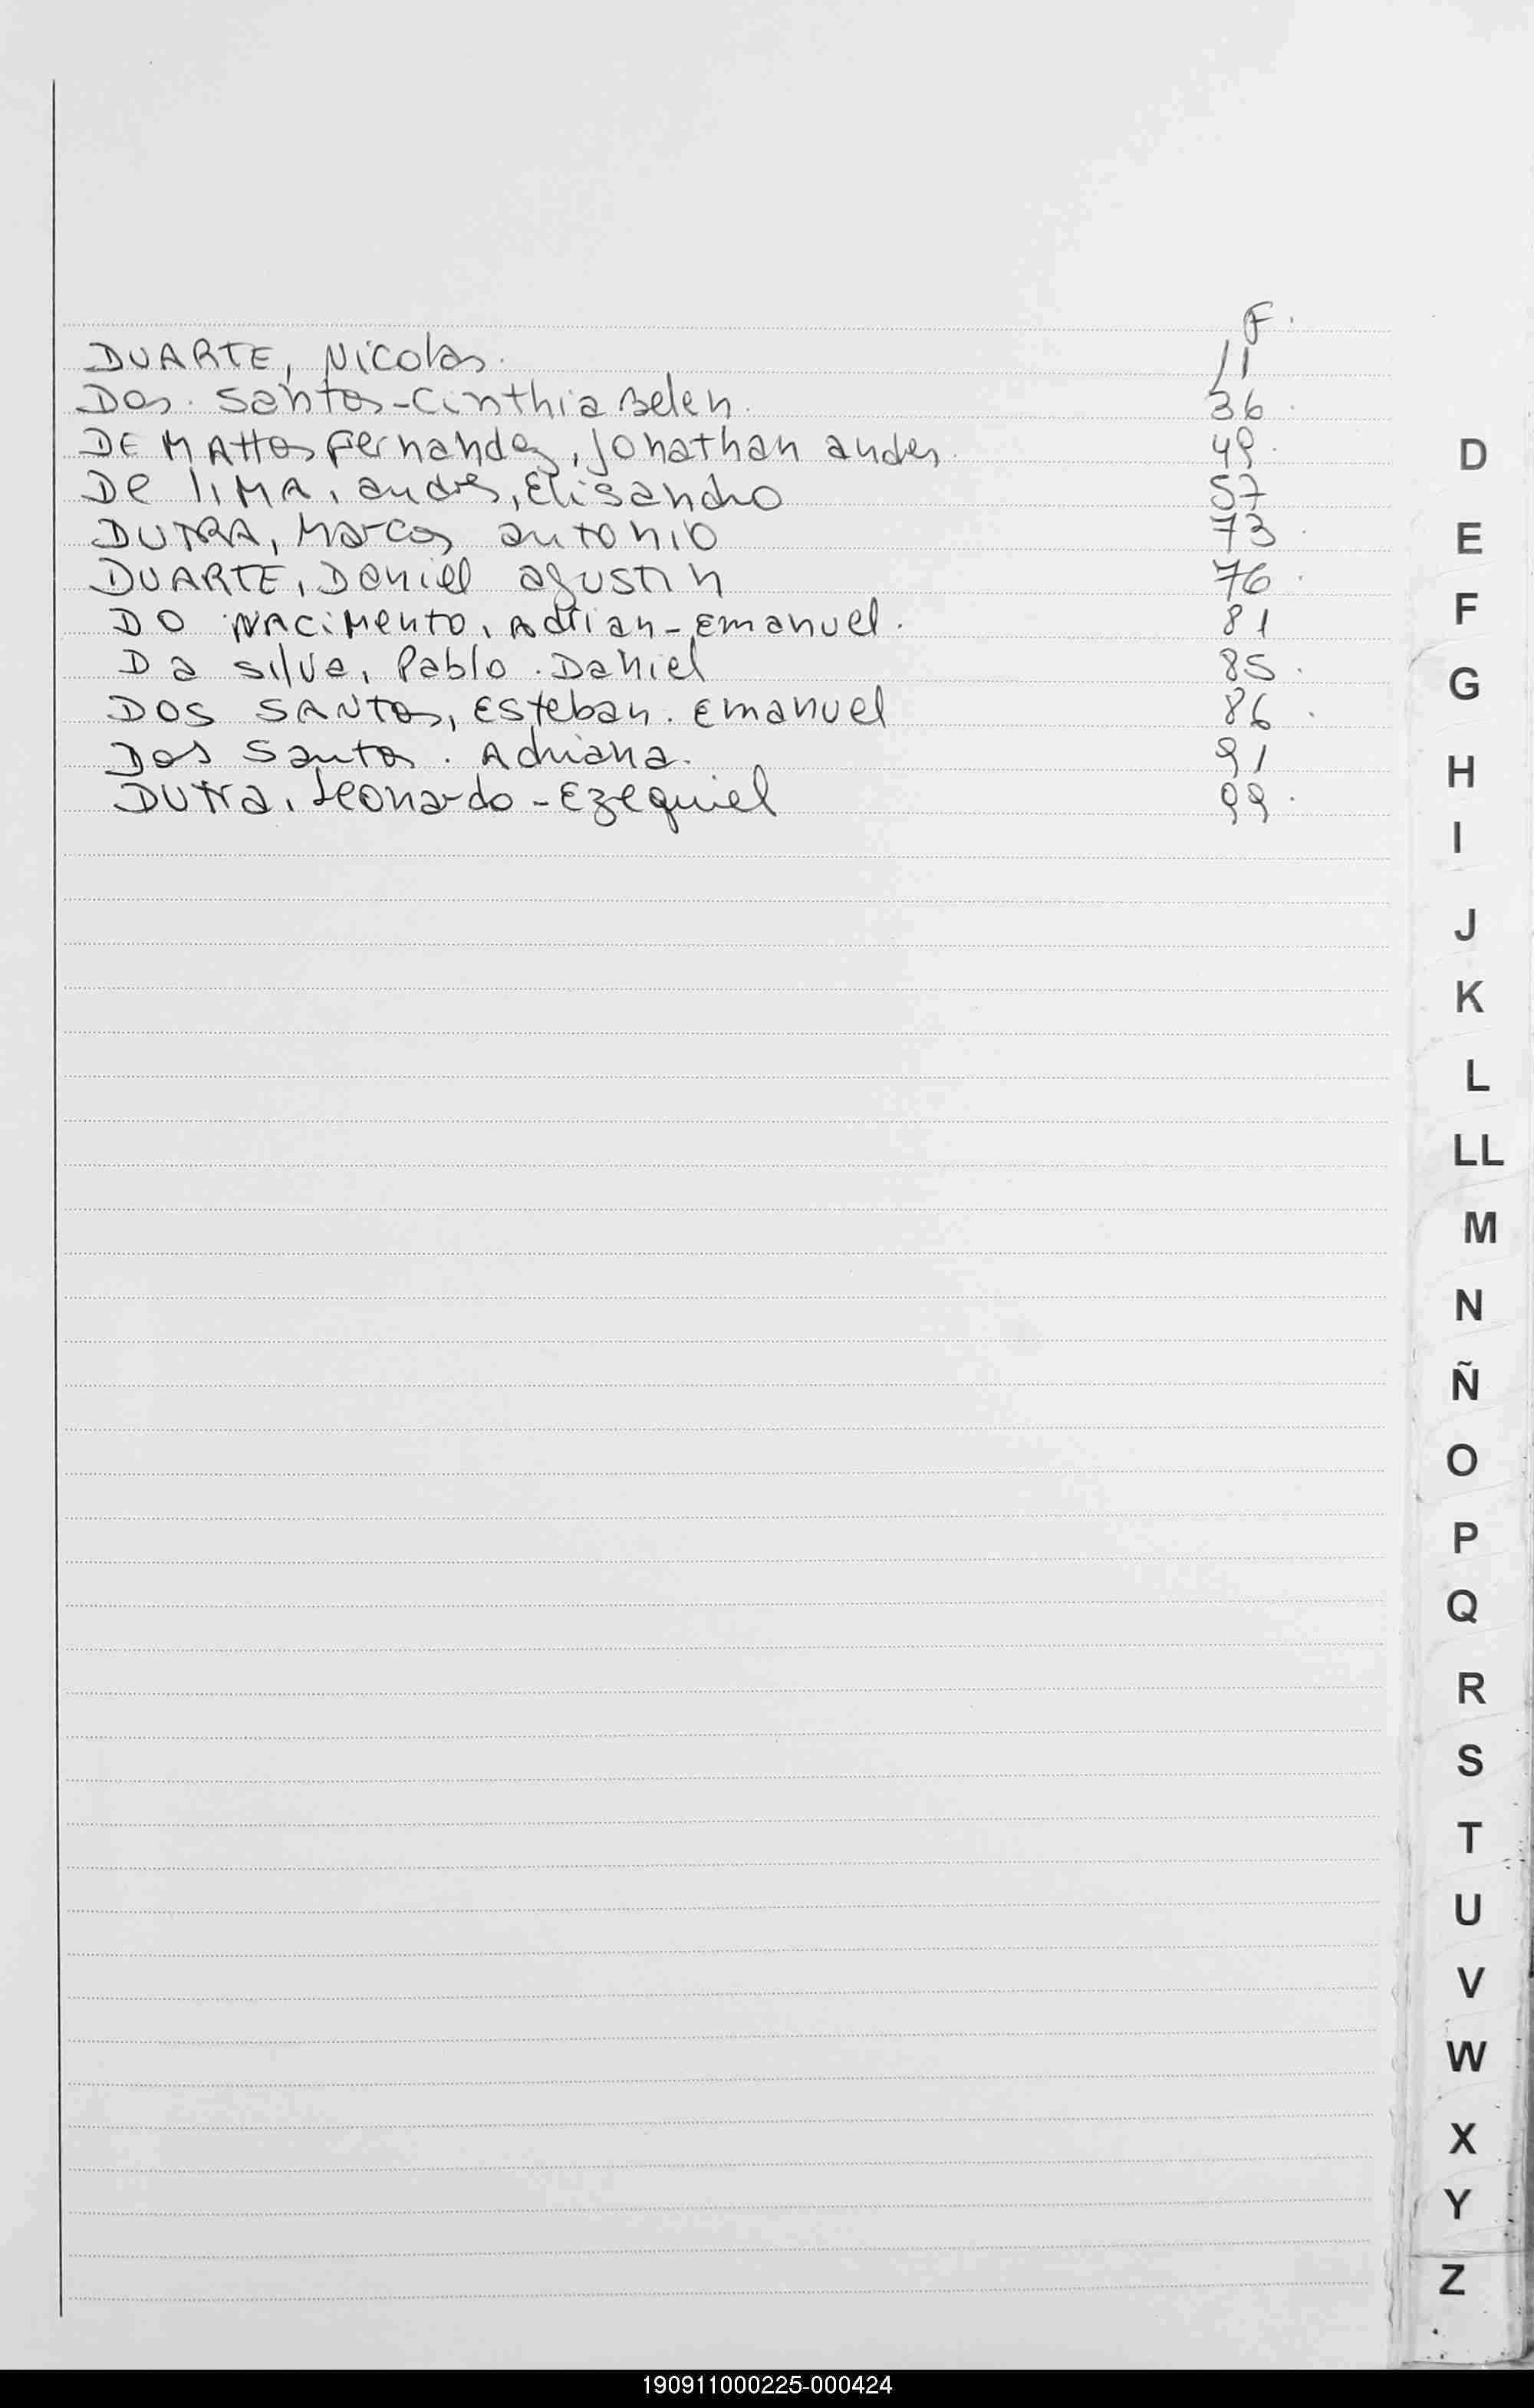 F.
DUARTE, Nicolas. 11
Dos. Santos-Cinthia Belen. 36.
DE MAttos Fernandez, Jonathan andres. 49.
De liMA, andres, Elisandro 57
DUTRA, Marcos antonio 73.
DUARTE, Daniel agustin 76.
DO NACiMento, Adrian-Emanuel. 81
Da silva, Pablo. Daniel 85.
DOS SANTos, Esteban. Emanuel 86.
Dos Santos. Adriana. 91
Dutra, Leonardo-Ezequiel 99.
D
E
F
G
H
I
J
K
L
LL
M
N
Ñ
O
P
Q
R
S
T
U
V
W
X
Y
Z
190911000225-000424